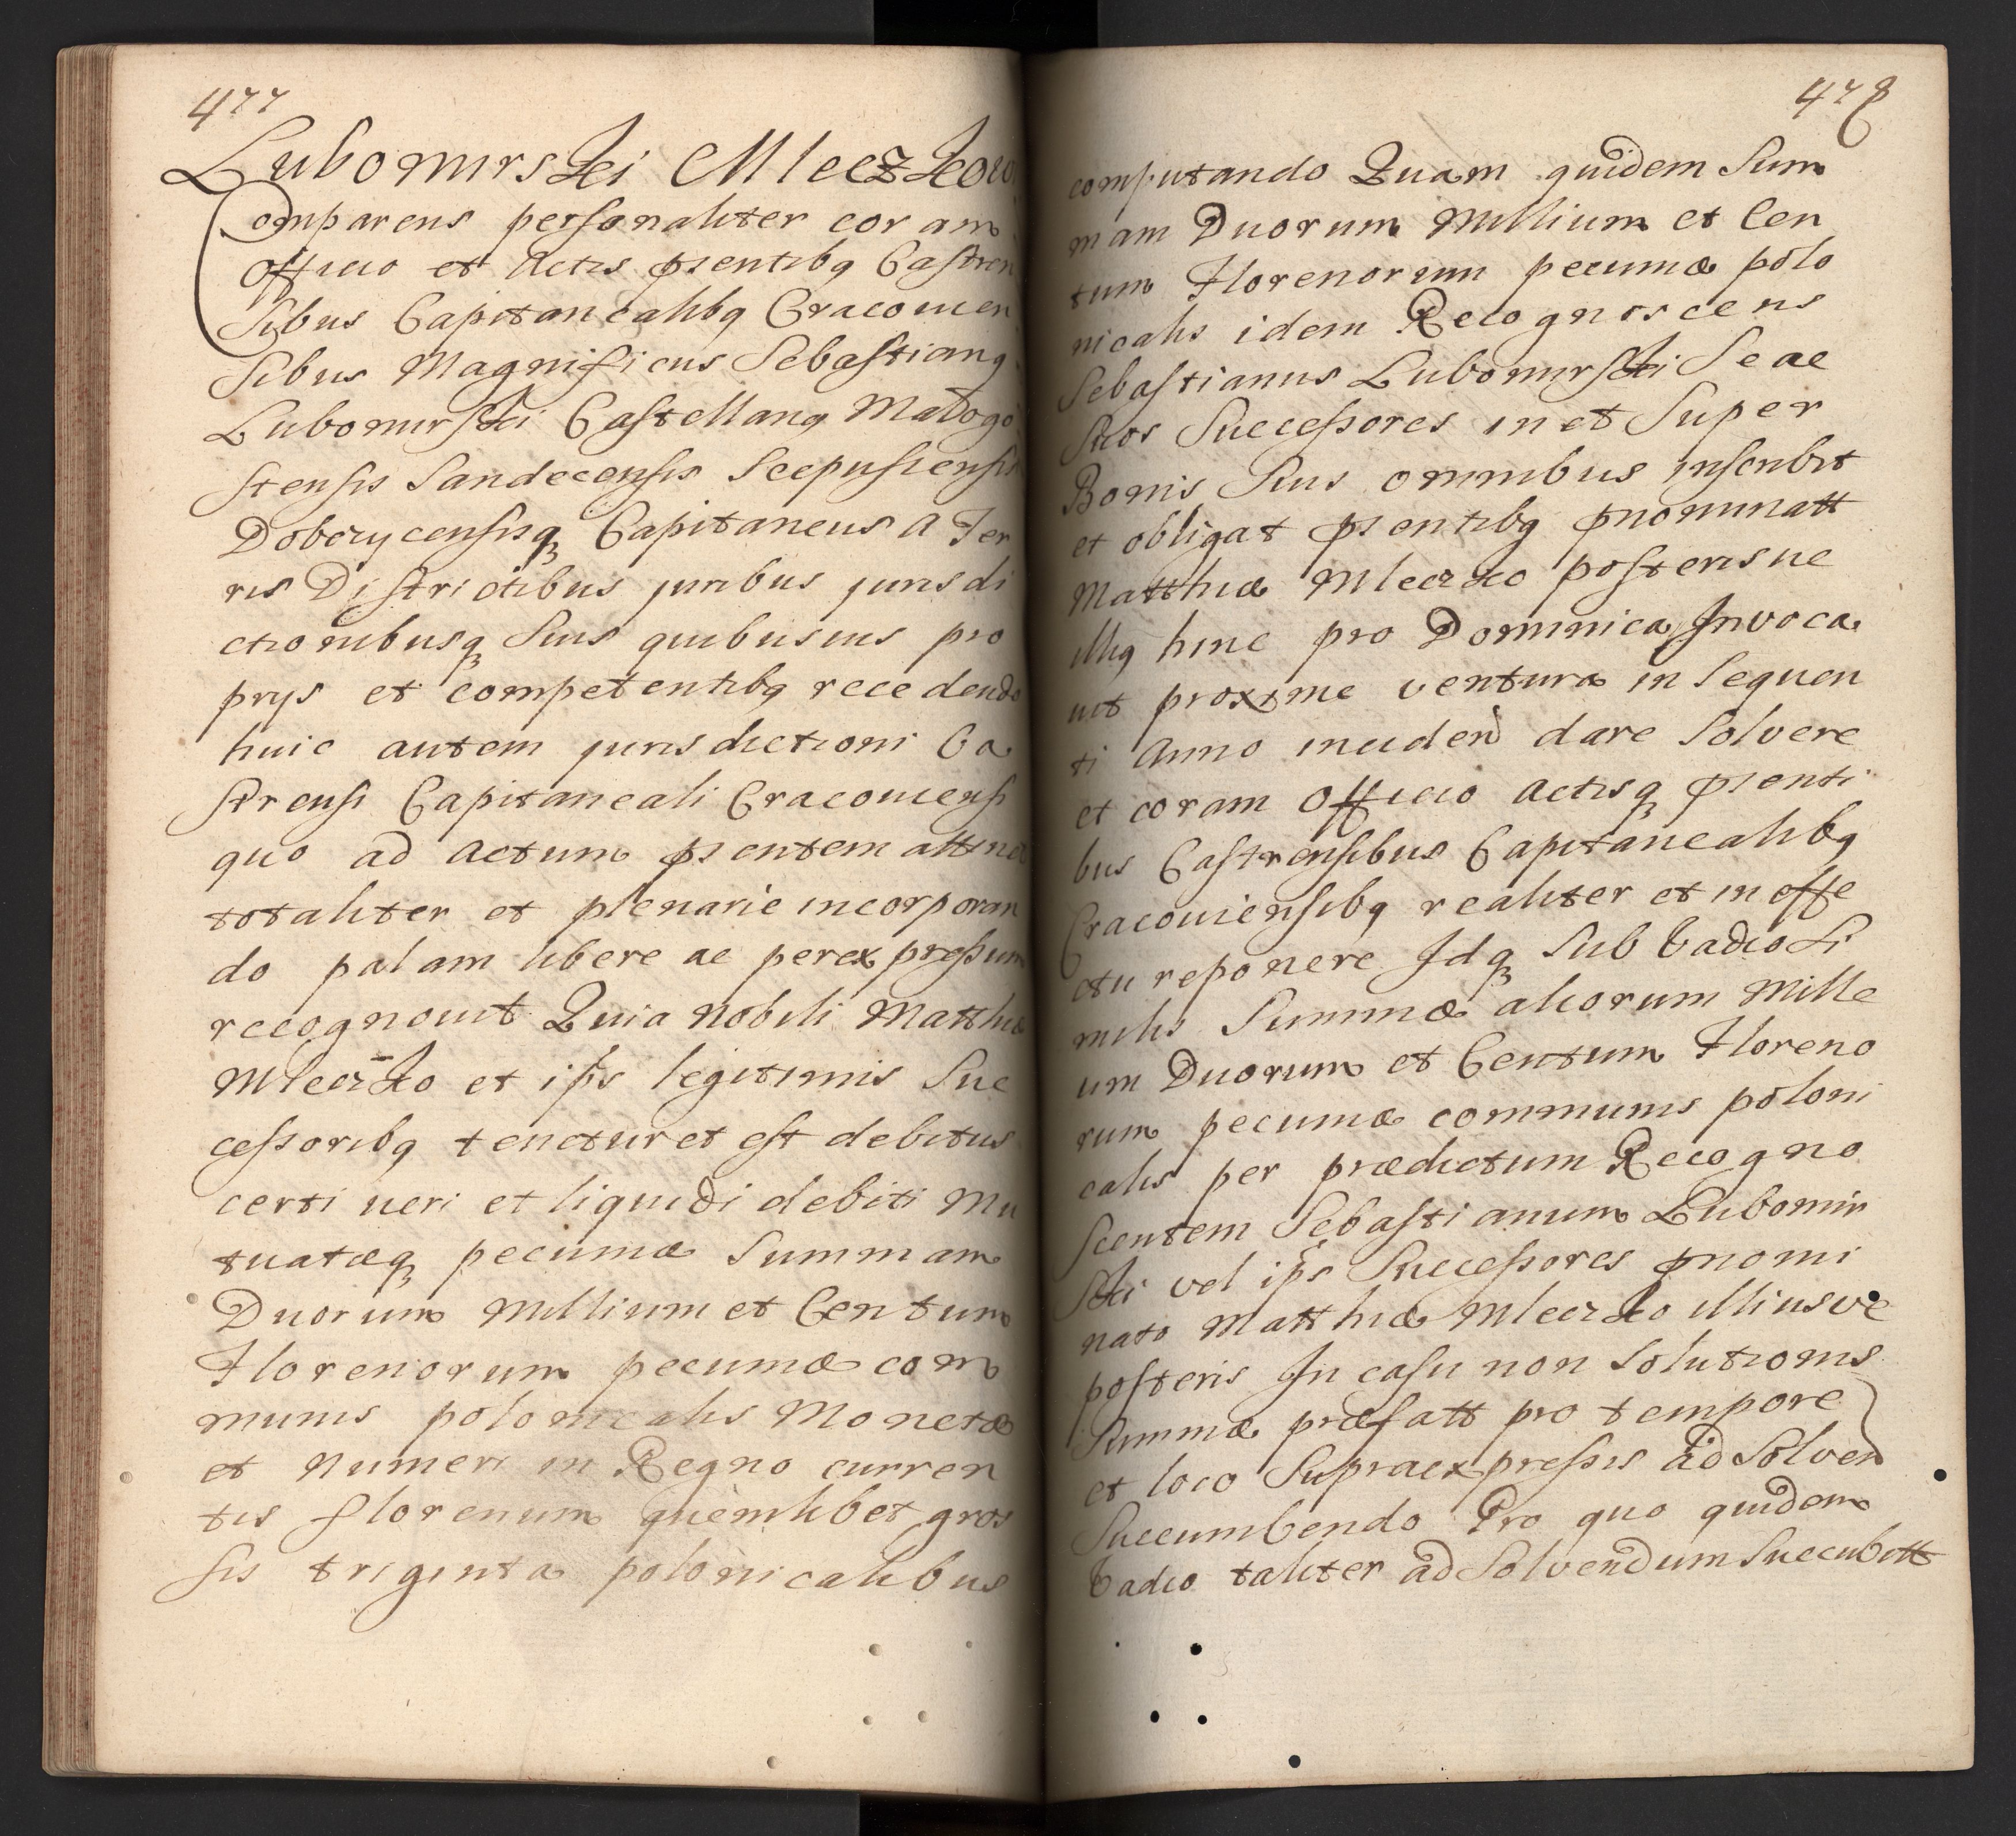 477
Lubomirski Mleczkow
Comparens personaliter coram
Officio et Actis pntibq Castren
sibus Capitanealibq Cracovien
sibus Magnificus Sebastianq
Lubomirski Castellanq Małogo
stensis Sandecensis Scepusiensis
Dobczycensisq Capitaneus A Ter
ris Districtibus juribus jurisdi
ctionibusq suis quibusvis pro
prys et competentibq recedendo
huic autem jurisdictioni Ca
strensi Capitaneali Cracoviensi
quo ad Actum pntem attinet
totaliter et plenarie incorporan
do palam libere ac per expressum
recognovit Quia Nobili Matthiæ
Mleczko et ips legitimis Suc
cessoribq tenetur et est debitus
certi veri et liquidi debiti Mu
tuatæq pecuniæ Summam
Duorum Millium et Centum
Florenorum pecuniæ com
munis polonicalis Monetæ
et Numeri in Regno curren
tis florenum quemlibet gros
sis triginta polonicalibus
478
computando Quam quidem Sum
mam Duorum Millium et Cen
tum Florenorum pecuniæ polo
nicalis idem Recognoscens
Sebastianus Lubomirski Se ac
suos Successores in et Super
Bonis Suis omnibus inscribit
et obligat pntibq pnominatt
Matthiæ Mleczko posterisve
illiq hinc pro Dominica Invoca
vit proxime ventura in Sequen
ti Anno inciden dare Solvere
et coram Officio Actisq pnti
bus Castrensibus Capitanealibq
Cracoviensibq realiter et in effe
ctu reponere Idq Sub Vadio Si
mili Summæ aliorum Mille
um Duorum et Centum Floreno
rum pecuniæ communis poloni
calis per prædictum Recogno
scentem Sebastianum Lubomir
ski vel ips Successores pnomi
nato Matthiæ Mleczko illiusve
posteris In casu non Solutionis
Summæ præfatt pro tempore
et loco Supra expressis ad Solven
Succumbendo Pro quo quidem
Vadio taliter ad Solvendum Succubitt